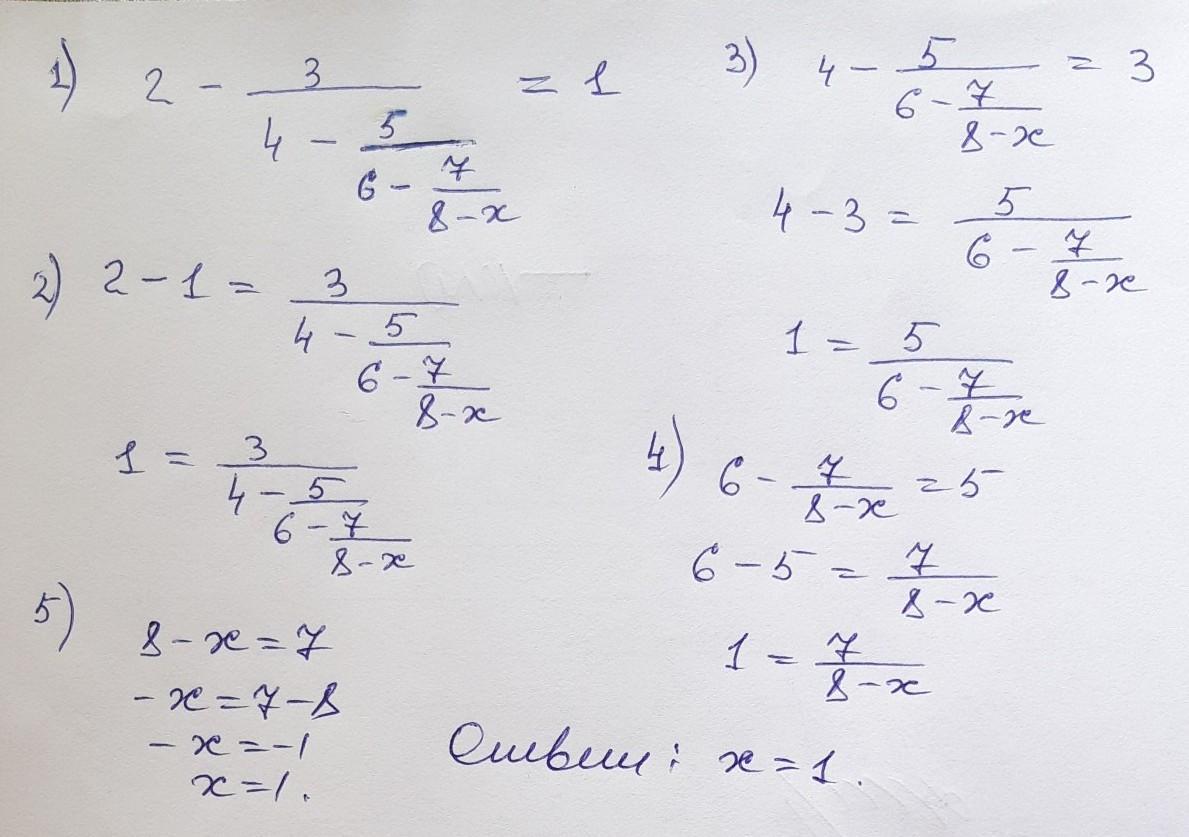 1) 2 - 3/(4 - 5/(6 - 7/(8-x))) = 1
2) 2 - 1 = 3/(4 - 5/(6 - 7/(8-x)))
1 = 3/(4 - 5/(6 - 7/(8-x)))
3) 4 - 5/(6 - 7/(8-x)) = 3
4 - 3 = 5/(6 - 7/(8-x))
1 = 5/(6 - 7/(8-x))
4) 6 - 7/(8-x) = 5
6 - 5 = 7/(8-x)
1 = 7/(8-x)
5) 8 - x = 7
- x = 7 - 8
- x = -1
x = 1.
Ответ: x = 1.